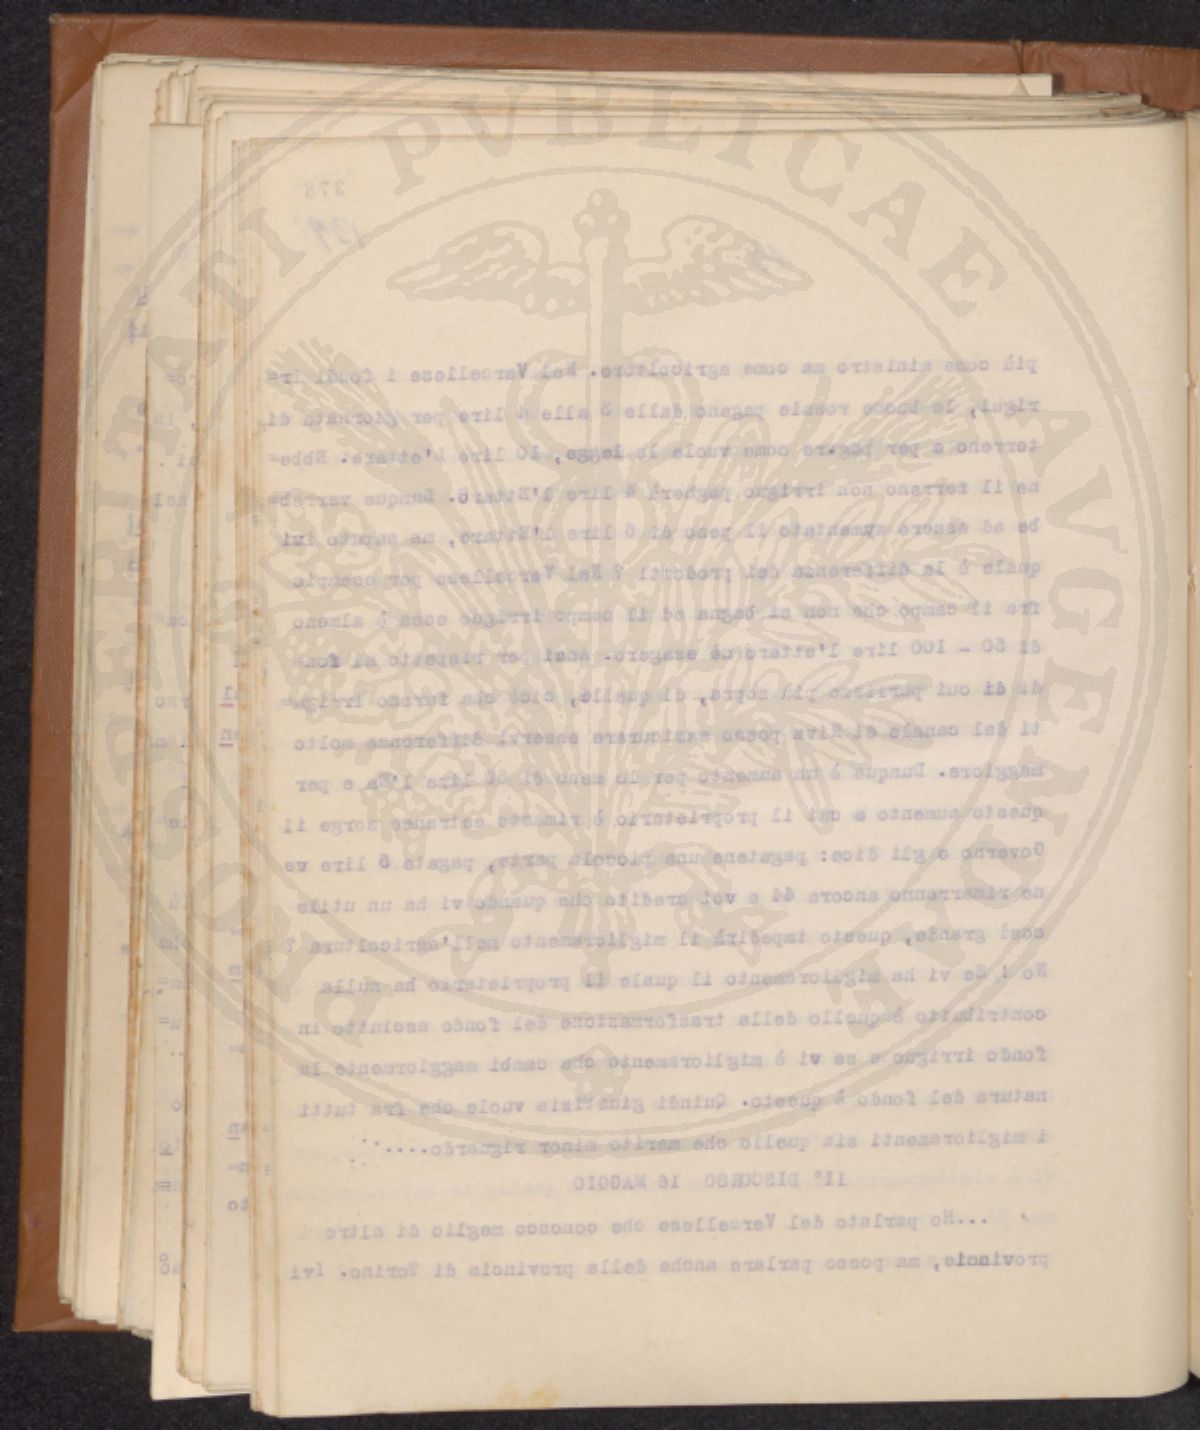 378
129
più come ministro ma come agricoltore. Nel Vercellese i fondi ir=
rigui, le buone rossie pagano dalle 3 alle 4 lire per giornata di
terreno e per pagare come vuole la legge, 10 lire l'ettare. Ebbe=
ne il terreno non irriguo pagherà 4 lire l'Ettaro. Dunque verreb=
be ad essere aumentato il peso di 6 lire l'Ettare, ma sapete ivi
quale è la differenza dei prodotti ? Nel Vercellese per esempio
fra il campo che non si bagna ed il campo irriguo essa è almeno
di 50 - 100 lire l'ettaro nè esagero. Anzi per rispetto ai fon=
di di cui parliamo più sopra, di quelle, cioè che furono irriga=
ti dal canale di Riva posso assicurare esservi differenza molto
maggiore. Dunque è un aumento per lo meno di 50 lire l'Ea e per
questo aumento a cui il proprietario è rimasto estraneo sorge il
Governo e gli dice: pagatene una piccola parte, pagate 6 lire ve
ne rimarranno ancora 44 e voi credete che quando vi ha un utile
così grande, questo impedirà il miglioramento nell'agricoltura ?
No ! Se vi ha miglioramento il quale il proprietario ha nulla
contribuito è quello della trasformazione del fondo asciutto in
fondo irriguo e se vi è miglioramento che cambi maggiormente la
natura del fondo è questo. Quindi giustizia vuole che fra tutti
i miglioramenti sia quello che merito minor riguardo.....
II° DISCORSO 16 MAGGIO
...Ho parlato del Vercellese che conosco meglio di altre
provincie, ma posso parlare anche della provincia di Torino. Ivi
PROSPERITATI PVBLICAE AVGENDAE